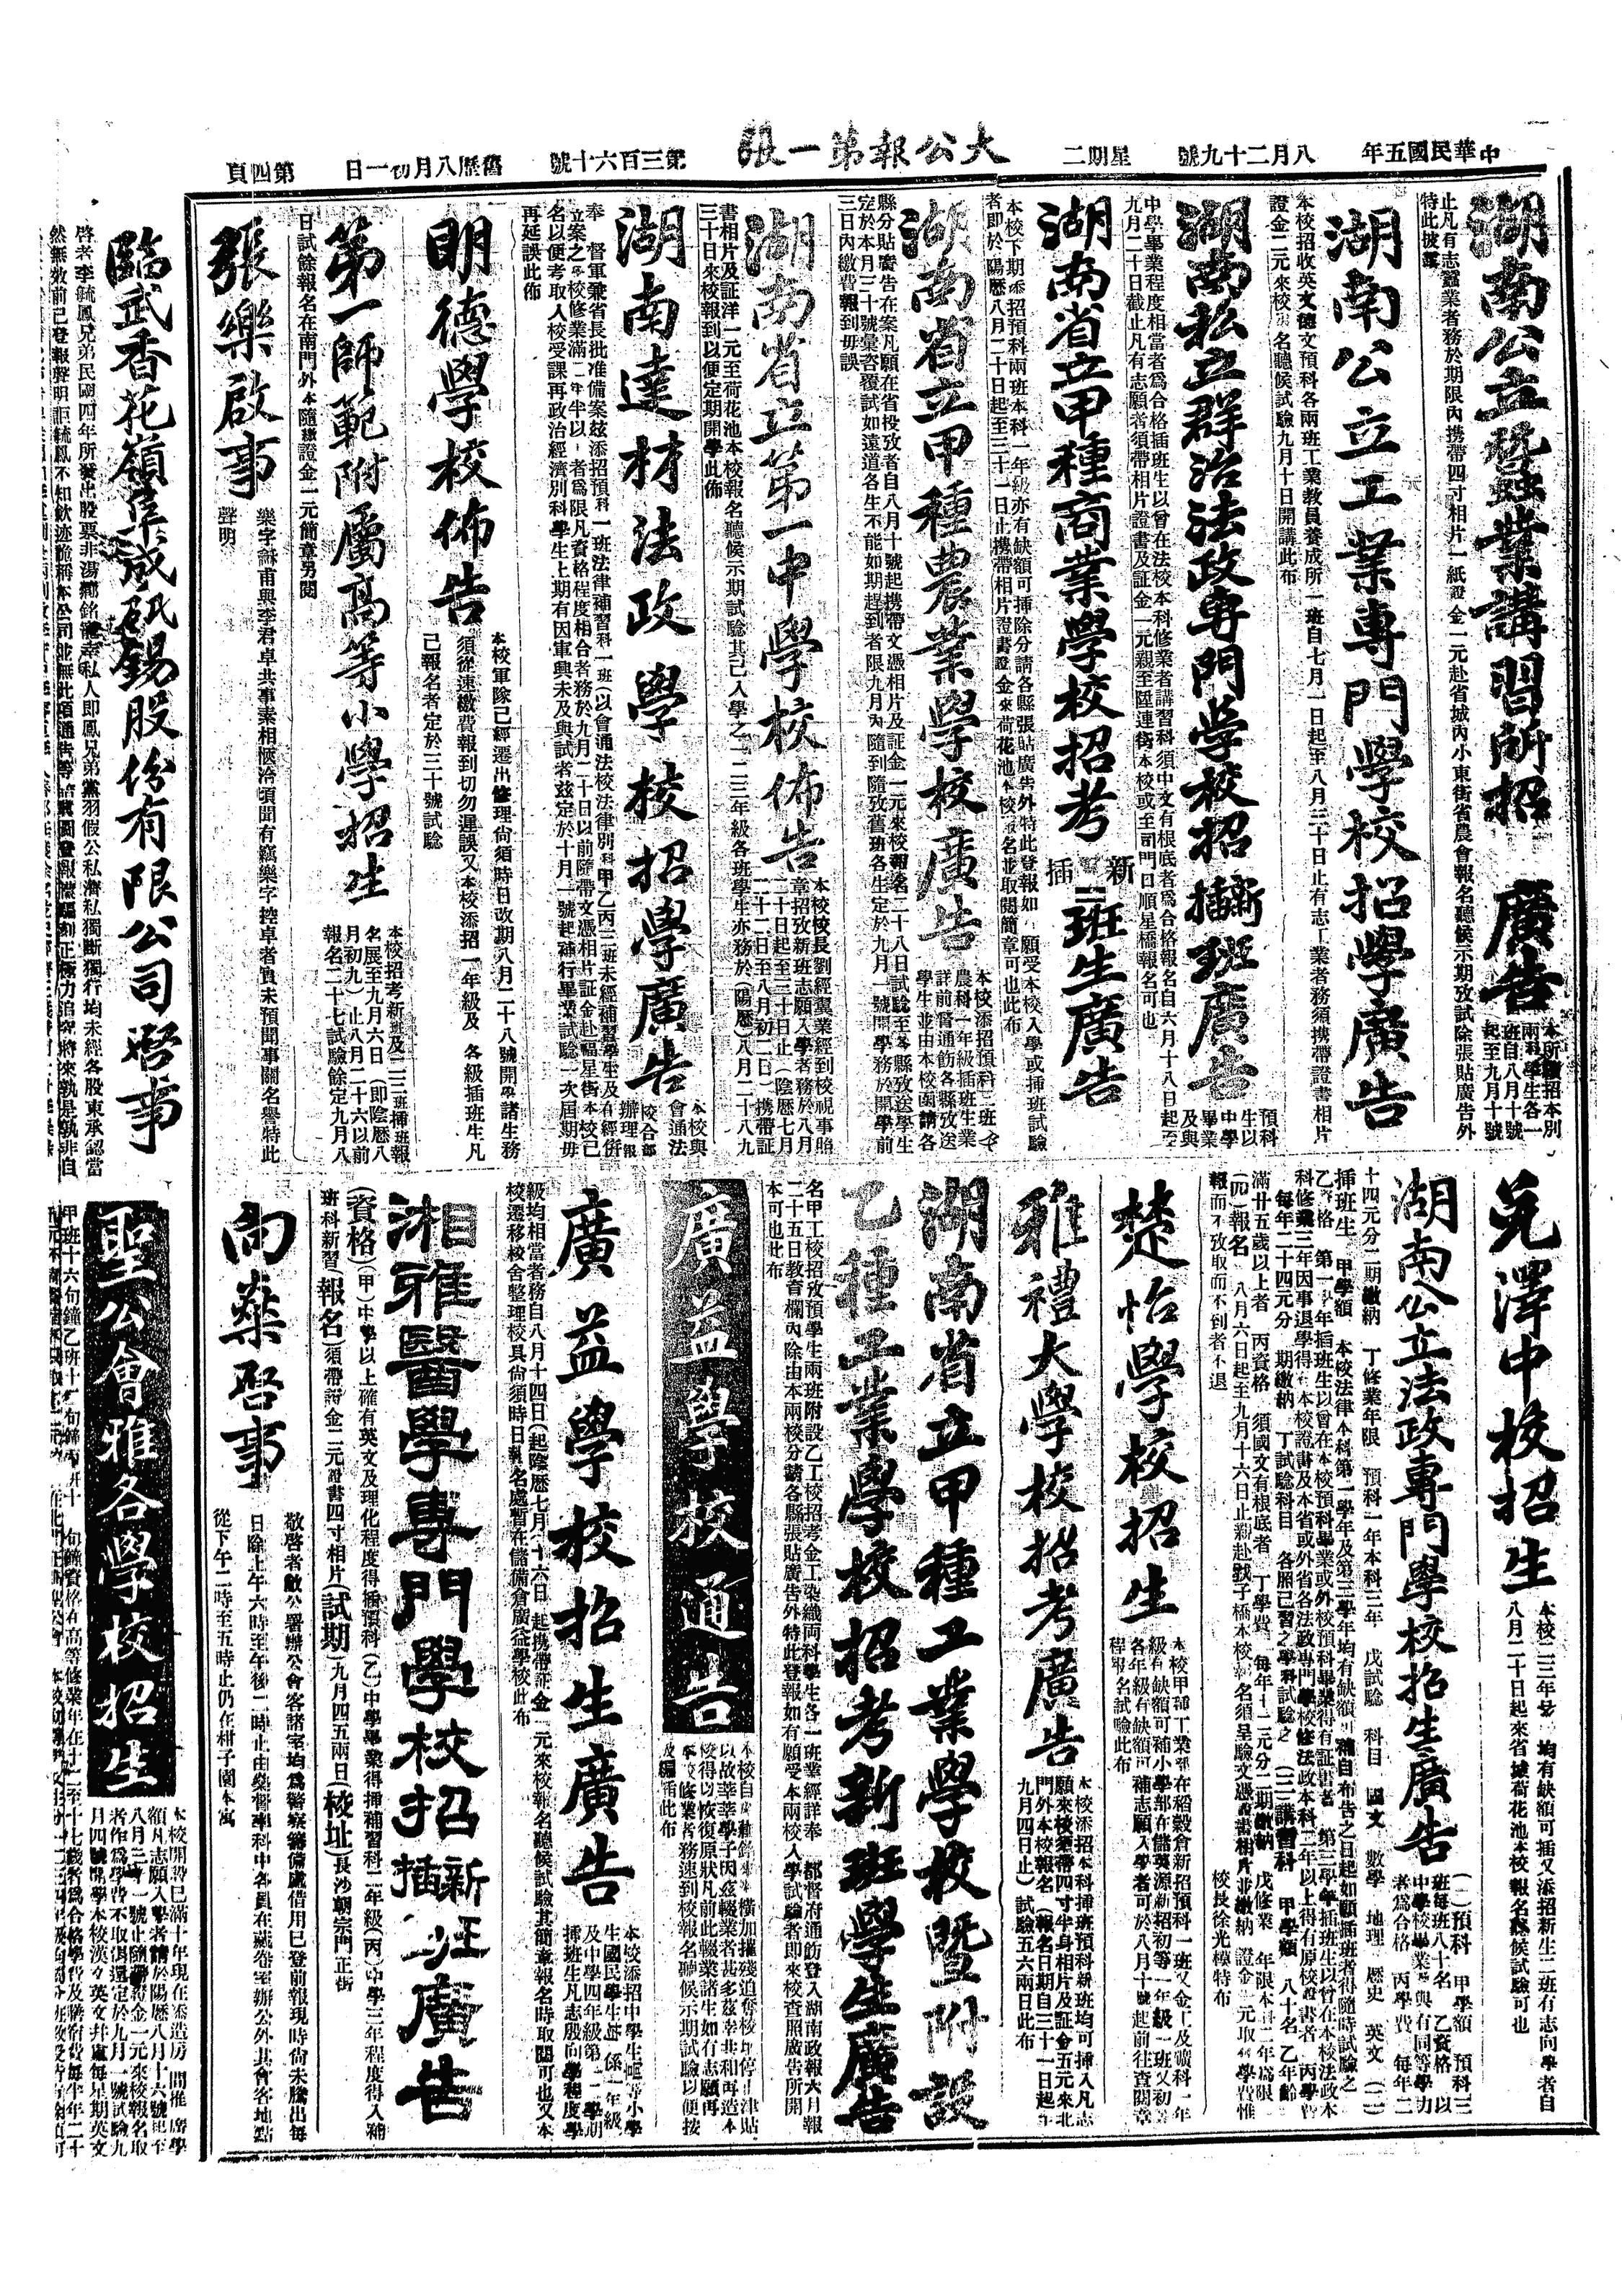 中華民國五年
八月二十九號
星期二
大公報第一張
第三百六十號
舊歷八月初一日
第四頁
湖南公立蠶業講習所招 廣告
本所續招本別
兩科學生各一
班自八月十號
起至九月十號
止凡有志蠶業者務於期限內携帶四寸相片一紙證金一元赴省城內小東街省農會報名聽候示期攷試除張貼廣告外
特此披露
湖南公立工業專門學校招學廣告
本校招收英文德文預科各兩班工業教員養成所一班自七月一日起至八月三十日止有志工業者務須携帶證書相片
證金二元來校報名聽候試驗九月十日開講此布
湖南私立群治法政專門學校招新插班廣告
預科
生以
中學
畢業
及與
中學畢業程度相當者爲合格插班生以曾在法校本科修業者講習科須中文有根底者爲合格報名自六月十八日起至
九月二十日截止凡有志願者須帶相片證書及証金一元親至陞連街本校或至司門日順星橋報名可也
湖南省立甲種商業學校招考新插二班生廣告
本校下期添招預科兩班本科一年級亦有缺額可挿除分請各縣張貼廣告外特此登報如 願受本校入學或挿班試驗
者即於陽歷八月二十日起至三十一日止携帶相片證書證金來荷花池本校報名並取閱簡章可也此布
湖南省立甲種農業學校廣告
本校添招預科三班
農科一年級插班生業
詳前督通飭各縣攷送
學生並由本校函請各
縣分貼廣告在案凡願在省投攷者自八月十號起携帶文憑相片及証金一元來校報名二十八日試驗至各縣攷送學生
定於本月三十號彙咨覆試如遠道各生不能如期趕到者限九月內隨到隨攷舊班各生定於九月一號開學務於開學前
三日內繳費報到毋誤
湖南省立第一中學校佈告
本校校長劉經翼業經到校視事照
章招攷新班志願入學者務於八月
二十日起至三十日止(陰歷七月
二十二日至八月初二日)携帶証
書相片及証洋一元至荷花池本校報名聽候示期試驗其已入學之一二三年級各班學生亦務於(陽歷)八月二十八九
三十日來校報到以便定期開學此佈
湖南達材法政學校招學廣告
本校與
會通法
校合部
辦理報
奉 督軍兼省長批准備案玆添招預科一班法律補習科一班(以會通法校法律別科甲乙丙三班未經補習學生及在經併
立案之學校修業滿二年半以上者爲限凡資格程度相合者務於九月二十日以前隨帶文憑相片証金赴福星街本校已
名以便考取入校受課再政治經濟別科學生上期有因軍興未及與試者玆定於十月一號起補行畢業試驗一次屆期毋
再延誤此佈
明德學校佈告
本校軍隊已經遷出修理尚須時日改期八月二十八號開學諸生務
須從速繳費報到切勿遲誤又本校添招一年級及 各級插班生凡
已報名者定於三十號試驗
第一師範附屬高等小學招生
本校招考新班及二三班挿班報
名展至九月六日(即陰歷八
月初九)止八月二十六以前
報名二十七試驗餘定九月八
日試餘報名在南門外本隨繳證金一元簡章另閱
張樂啟事
樂字龢甫與李君卓共事素相愜洽頃聞有竊樂字控卓者實未預聞事關名譽特此
聲明
臨武香花嶺集成砒錫股份有限公司啓事
啓者李毓鳳兄弟民國四年所發出股票非湯鄉銘寵幸私人即鳳兄弟黨羽假公私濟私獨斷獨行均未經各股東承認當
兌澤中校招生
本校二三年級 均有缺額可插又添招新生二班有志向學者自
八月二十日起來省城荷花池本校報名聽候試驗可也
湖南公立法政專門學校招生廣告
(一)預科 甲學額 預科三
班每班八十名 乙資格 以
中學校畢業及與有同等學力
者爲合格 丙學費 每年二
十四元分二期繳納 丁修業年限 預科一年本科三年 戊試驗 科目 國文 數學 地理 歷史 英文 (二)
挿班生 甲學額 本校法律本科第一學年及第三學年均有缺額可補自布告之日起如願插班者得隨時試驗之
乙資格 第一學年插班生以曾在本校預科畢業或外校預科畢業得有証書者 第三學年插班生以曾在本校法政本
科修業三年因事退學得有本校證書及本省或外省各法政專門學校修法政本科二年以上得有原校證書者 丙學費
每年二十四元分二期繳納 丁試驗科目 各照已習之學科試驗之 (三)講習科 甲學額 八十名 乙年齡
滿廿五歲以上者 丙資格 須國文有根底者 丁學費 每年十二元分二期繳納 戊修業 年限本科二年爲限
(四)報名 八月六日起至九月十六日止親赴戥子橋本校報名須呈驗文憑證書相片並繳納 證金一元取錄學費惟
報而不攷取而不到者不退
校長徐光模特布
楚怡學校招生
本校甲種工業部在稻穀倉新招預科一班又金工及礦科一年
級有缺額可補小學部在儲英源新招初等一年級一班又初等
各年級有缺額可補志願入學者可於八月十號起前往查閱章
程報名試驗此布
雅禮大學校招考廣告
本校添招本科挿班預科新班均可挿入凡志
願來校須帶四寸半身相片及証金五元來北
門外本校報名(報名日期自三十一日起至
九月四日止)試驗五六兩日此布
湖南省立甲種工業學校暨附設
乙種工業學校招考新班學生廣告
名甲工校招攷預學生兩班附設乙工校招考金工染織両科學生各一班業經詳奉 都督府通飭登入湖南政報六月報
二十五日教育欄內除由本兩校分請各縣張貼廣告外特此登報如有願受本兩校入學試驗者即來校查照廣告所開
本可也此布
廣益學校通告
本校自
橫加摧殘迫奪校址停止津貼
以故莘莘學子因玆輟業者甚多玆幸共和再造本
校得以恢復原狀凡前此輟業諸生如有志願再
本校修業者務速到校報名聽候示期試驗以便按
級編補此布
廣益學校招生廣告
本校添招中學生
小學
生國民學生
一年級
及中學四年級第二學期
挿班生凡志願向學程度學
級均相當者務自八月十四日(起陰歷七月十六日)起携帶証金一元來校報名聽候試驗其簡章報名時取閱可也又本
校遷移校舍整理校具尙須時日報名處暫在儲備倉廣益學校此布
湘雅醫學專門學校招新插班廣告
(資格)(甲)中學以上確有英文及理化程度得插預科(乙)中學畢業得挿補習科二年級(丙)中學三年程度得入補
班科新習(報名)須帶證金二元證書四寸相片(試期)九月四五兩日(校址)長沙朝宗門正街
向燊啓事
敬啓者敝公署辦公會客諸室均爲警察籌備處借用已登前報現時尙未騰出每
日除上午六時至午後二時止由燊督學科中各員在藏卷室辦公外其會客地點
從下午二時至五時止仍在柑子園本寓
聖公會雅各學校招生
本校開設已滿十年現在添造房 間推 廣學
額凡志願入學者請於陽歷八月十六號起至
八月三十一號止隨帶證金一元來校報名取
月四號開學本校漢文英文幷重每星期英文